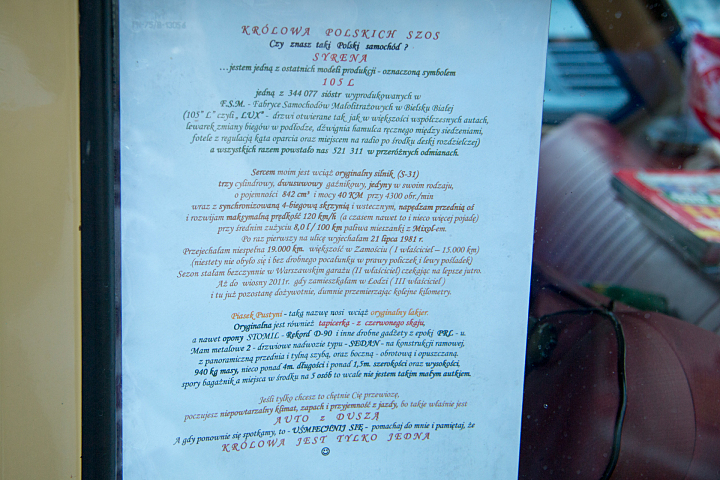 KRÓLOWA POLSKICH SZOS
Czy znasz taki Polski samochód ?
SYRENA
...jestem jedną z ostatnich modeli produkcji - oznaczoną symbolem
105 L
jedną z 344 077 sióstr wyprodukowanych w
F.S.M. - Fabryce Samochodów Małolitrażowych w Bielsku Białej
(105" L" czyli „ LUX" - drzwi otwierane tak jak w większości współczesnych autach,
lewarek zmiany biegów w podłodze, dźwignia hamulca ręcznego między siedzeniami,
fotele z regulacją kąta oparcia oraz miejscem na radio po środku deski rozdzielczej)
a wszystkich razem powstało nas 521 311 w przeróżnych odmianach.
Sercem moim jest wciąż oryginalny silnik (S-31)
trzy cylindrowy, dwusuwowy gaźnikowy, jedyny w swoim rodzaju,
o pojemności 842 cm³ i mocy 40 KM przy 4300 obr./min
wraz z synchronizowaną 4-biegową skrzynią i wstecznym, napędzam przednią oś
i rozwijam maksymalną prędkość 120 km/h (a czasem nawet to i nieco więcej pojadę)
przy średnim zużyciu 8,0 l / 100 km paliwa mieszanki z Mixol-em.
Po raz pierwszy na ulicę wyjechałam 21 lipca 1981 r.
Przejechałam niespełna 19.000 km. większość w Zamościu ( I właściciel – 15.000 km)
(niestety nie obyło się i bez drobnego pocałunku w prawy policzek i lewy pośladek)
Sezon stałam bezczynnie w Warszawskim garażu (II właściciel) czekając na lepsze jutro.
Aż do wiosny 2011r. gdy zamieszkałam w Łodzi ( III właściciel )
i tu już pozostanę dożywotnie, dumnie przemierzając kolejne kilometry.
Piasek Pustyni - taką nazwę nosi wciąż oryginalny lakier.
Oryginalna jest również tapicerka - z czerwonego skaju,
a nawet opony STOMIL - Rekord D-90 i inne drobne gadżety z epoki PRL - u.
Mam metalowe 2 - drzwiowe nadwozie typu - SEDAN - na konstrukcji ramowej,
z panoramiczną przednią i tylną szybą, oraz boczną - obrotową i opuszczaną.
940 kg masy, nieco ponad 4m. długości i ponad 1,5m. szerokości oraz wysokości,
spory bagażnik a miejsca w środku na 5 osób to wcale nie jestem takim małym autkiem.
Jeśli tylko chcesz to chętnie Cię przewiozę,
poczujesz niepowtarzalny klimat, zapach i przyjemność z jazdy, bo takie właśnie jest
AUTO z DUSZĄ
A gdy ponownie się spotkamy, to - UŚMIECHNIJ SIĘ - pomachaj do mnie i pamiętaj, że
KRÓLOWA JEST TYLKO JEDNA
☺